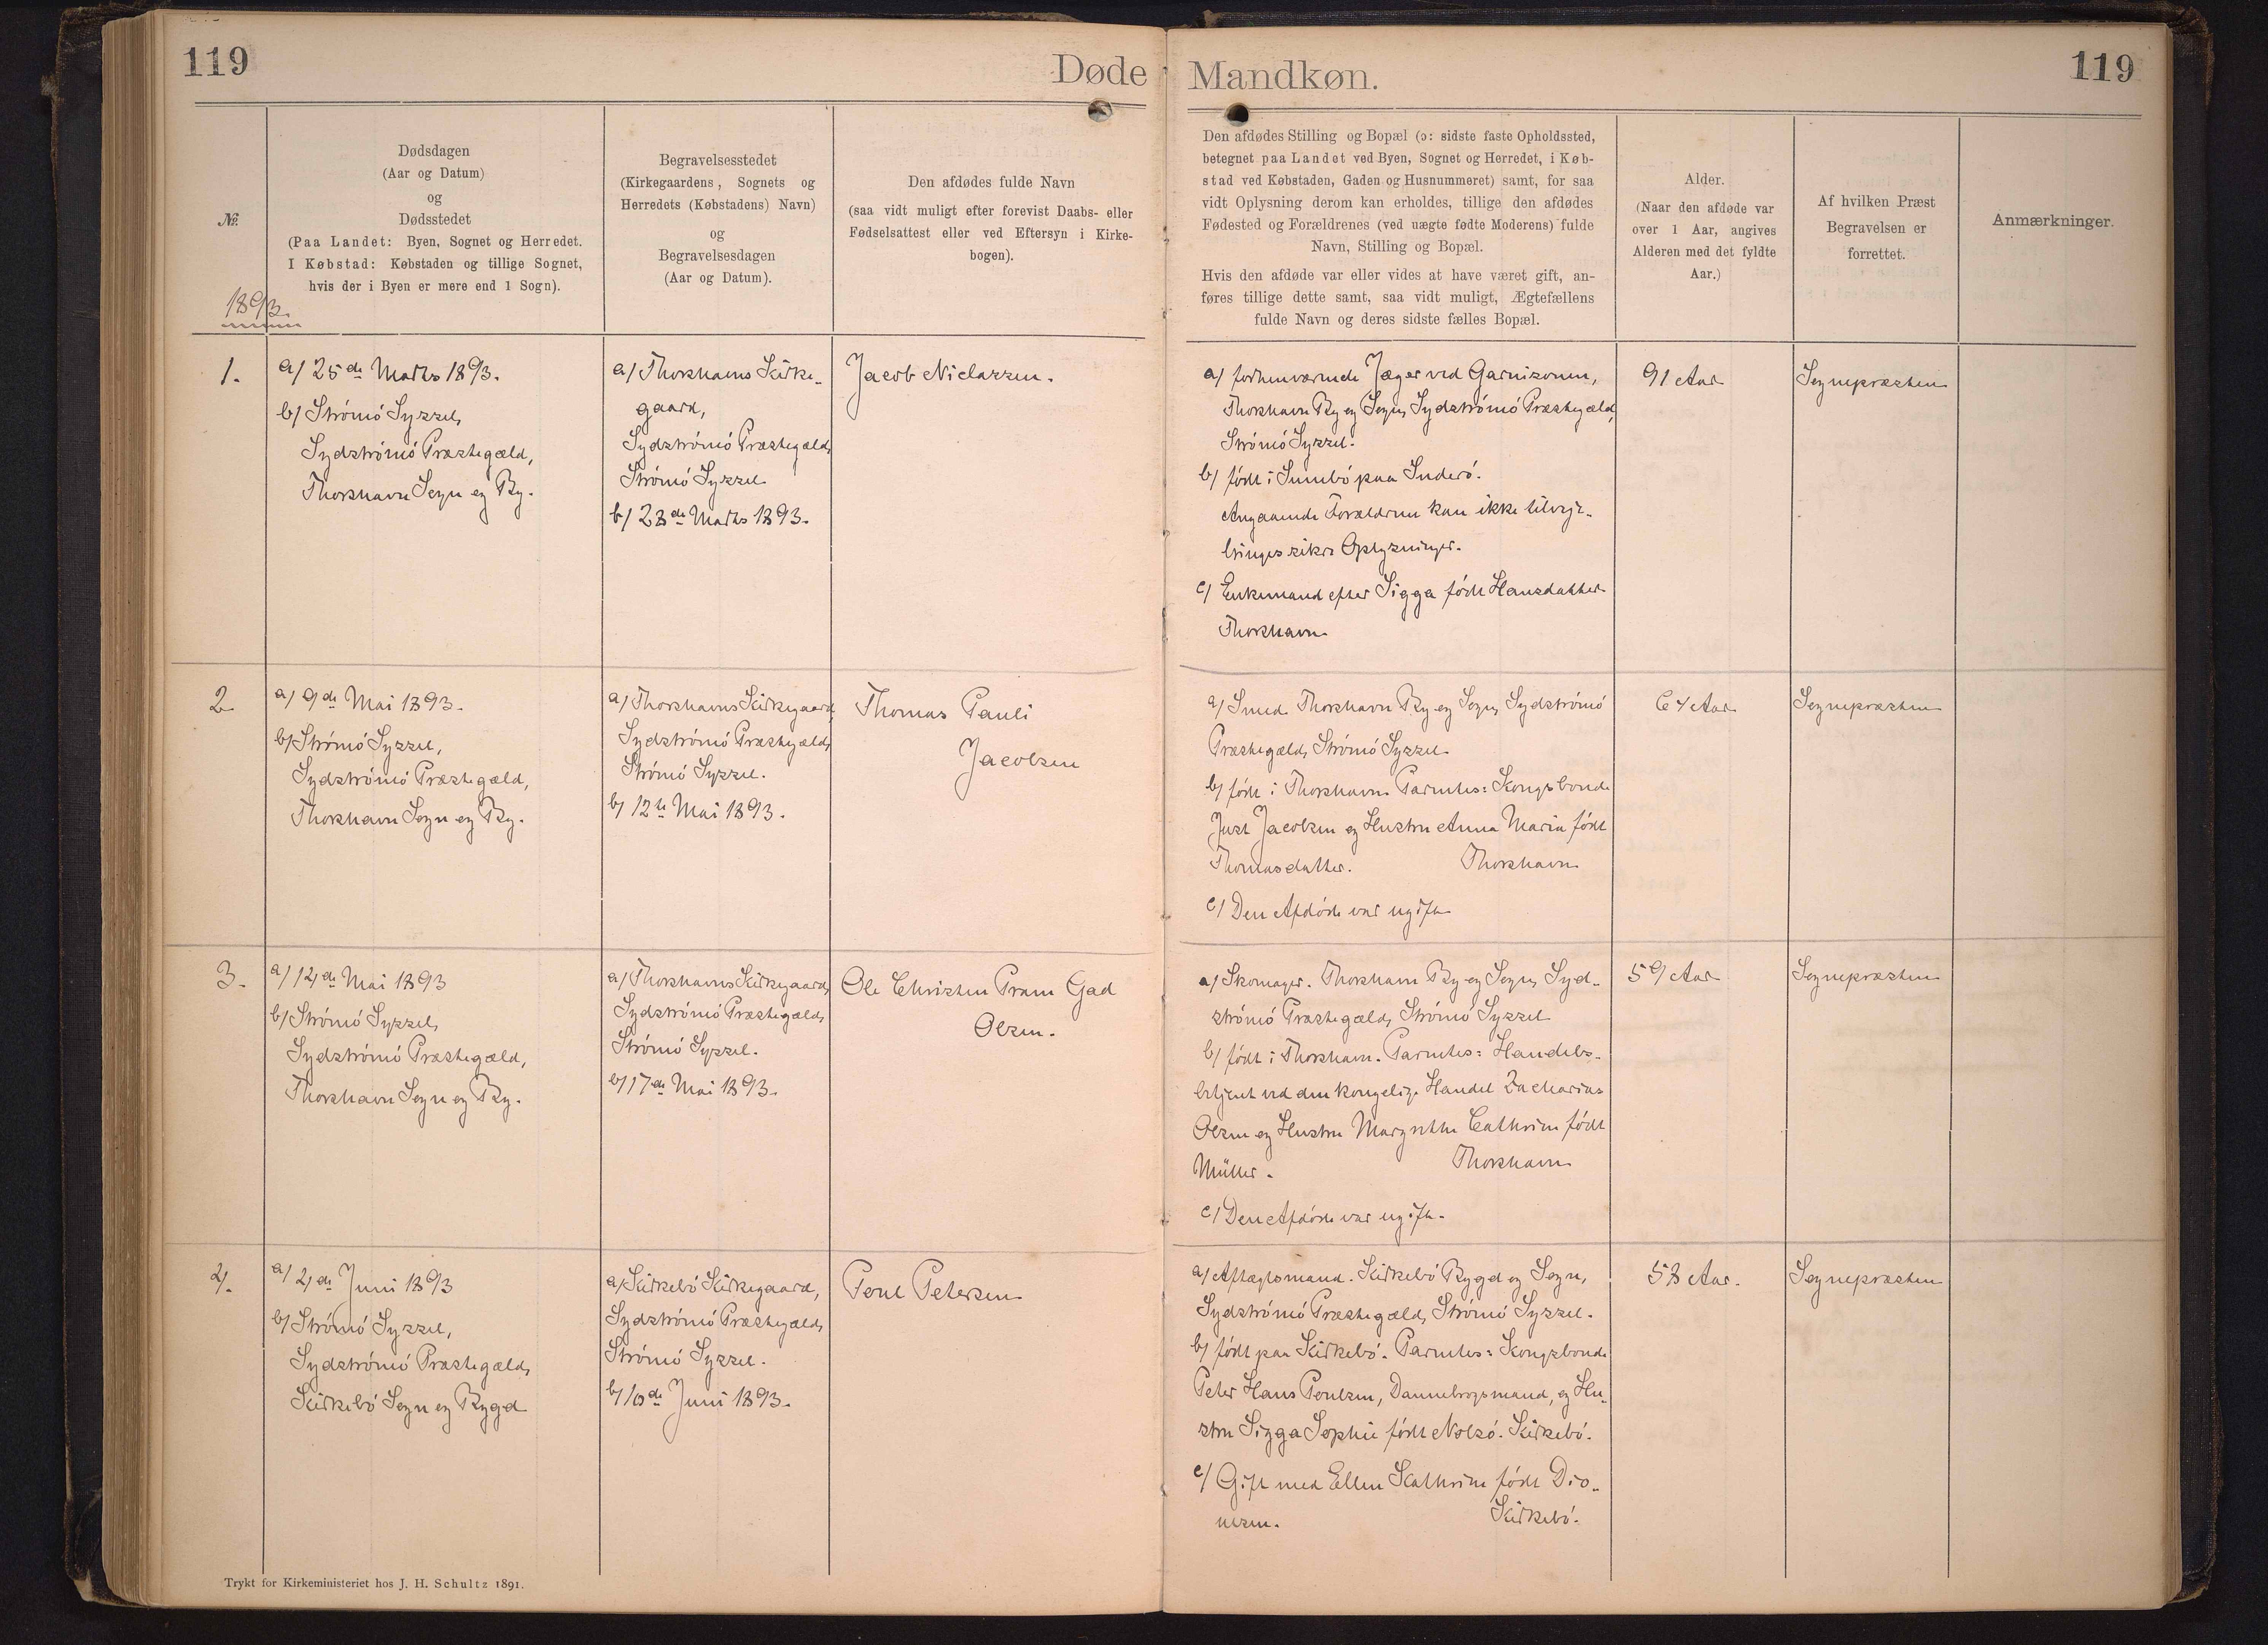 119
Døde
Mandkøn.
119
№.
1893.
Dødsdagen
(Aar og Datum)
og
Dødsstedet
(Paa Landet: Byen, Sognet og Herredet.
I Købstad: Købstaden og tillige Sognet,
hvis der i Byen er mere end 1 Sogn).
Begravelsesstedet
(Kirkegaardens, Sognets og
Herredets (Købstadens) Navn)
og
Begravelsesdagen
(Aar og Datum).
Den afdødes fulde Navn
(saa vidt muligt efter forevist Daabs- eller
Fødselsattest eller ved Eftersyn i Kirke-
bogen).
Den afdødes Stilling og Bopæl (ɔ: sidste faste Opholdssted,
betegnet paa Landet ved Byen, Sognet og Herredet, i Køb-
stad ved Købstaden, Gaden og Husnummeret) samt, for saa
vidt Oplysning derom kan erholdes, tillige den afdødes
Fødested og Forældrenes (ved uægte fødte Moderens) fulde
Navn, Stilling og Bopæl.
Hvis den afdøde var eller vides at have været gift, an-
føres tillige dette samt, saa vidt muligt, Ægtefællens
fulde Navn og deres sidste fælles Bopæl.
Alder.
(Naar den afdøde var
over 1 Aar, angives
Alderen med det fyldte
Aar.)
Af hvilken Præst
Begravelsen er
forrettet.
Anmærkninger.
1.
a/ 25de Marts 1893.
b/ Strømø Syssel,
Sydstrømø Præstegæld,
Thorshavn Sogn og By.
a/ Thorshavns Kirke-
gaard,
Sydstrømø Præstegæld,
Strømø Syssel
b/ 28de Marts 1893.
Jacob Niclassen.
a/ forhenværende Jæger ved Garnisonen,
Thorshavn By og Sogn, Sydstrømø Præstegæld,
Strømø Syssel.
b/ født i Sumbø paa Suderø.
Angaaende Forældrene kan ikke tilveje-
bringes sikre Oplysninger.
c/ Enkemand efter Sigga født Hansdatter
Thorshavn
91 Aar
Sognepræsten
2
a/ 9de Mai 1893.
b/ Strømø Syssel,
Sydstrømø Præstegæld,
Thorshavn Sogn og By.
a/ Thorshavns Kirkegaard,
Sydstrømø Præstegæld,
Strømø Syssel.
b/ 12te Mai 1893.
Thomas Pauli
Jacobsen
a/ Smed. Thorshavn By og Sogn, Sydstrømø
Præstegæld, Strømø Syssel
b/ født i Thorshavn. Parentes: Kongsbonde
Just Jacobsen og Hustru Anna Maria født
Thomasdatter. Thorshavn
c/ Den Afdøde var ugift
64 Aar
Sognepræsten
3.
a/ 14de Mai 1893
b/ Strømø Syssel,
Sydstrømø Præstegæld,
Thorshavn Sogn og By.
a/ Thorshavns Kirkegaard,
Sydstrømø Præstegæld,
Strømø Syssel.
b/ 17de Mai 1893.
Ole Christen Pram Gad
Olsen.
a/ Skomager. Thorshavn By og Sogn, Syd-
strømø Præstegæld, Strømø Syssel
b/ født i Thorshavn. Parentes: Handels-
betjent ved den kongelige Handel Zacharias
Olsen og Hustru Margrethe Cathrine født
Müller. Thorshavn
c/ Den Afdøde var ugift.
59 Aar
Sognepræsten
4.
a/ 4de Juni 1893
b/ Strømø Syssel,
Sydstrømø Præstegæld,
Kirkebø Sogn og Bygd
a/ Kirkebø Kirkegaard,
Sydstrømø Præstegæld,
Strømø Syssel.
b/ 10de Juni 1893.
Poul Petersen
a/ Aftægtsmand. Kirkebø Bygd og Sogn,
Sydstrømø Præstegæld, Strømø Syssel.
b/ født paa Kirkebø. Parentes: Kongsbonde
Peter Hans Poulsen, Dannebrogsmand, og Hu-
stru Sigga Sophie født Nolsø. Kirkebø.
c/ Gift med Ellen Kathrine født Djo-
nesen. Kirkebø.
58 Aar.
Sognepræsten
Trykt for Kirkeministeriet hos J. H. Schultz 1891.